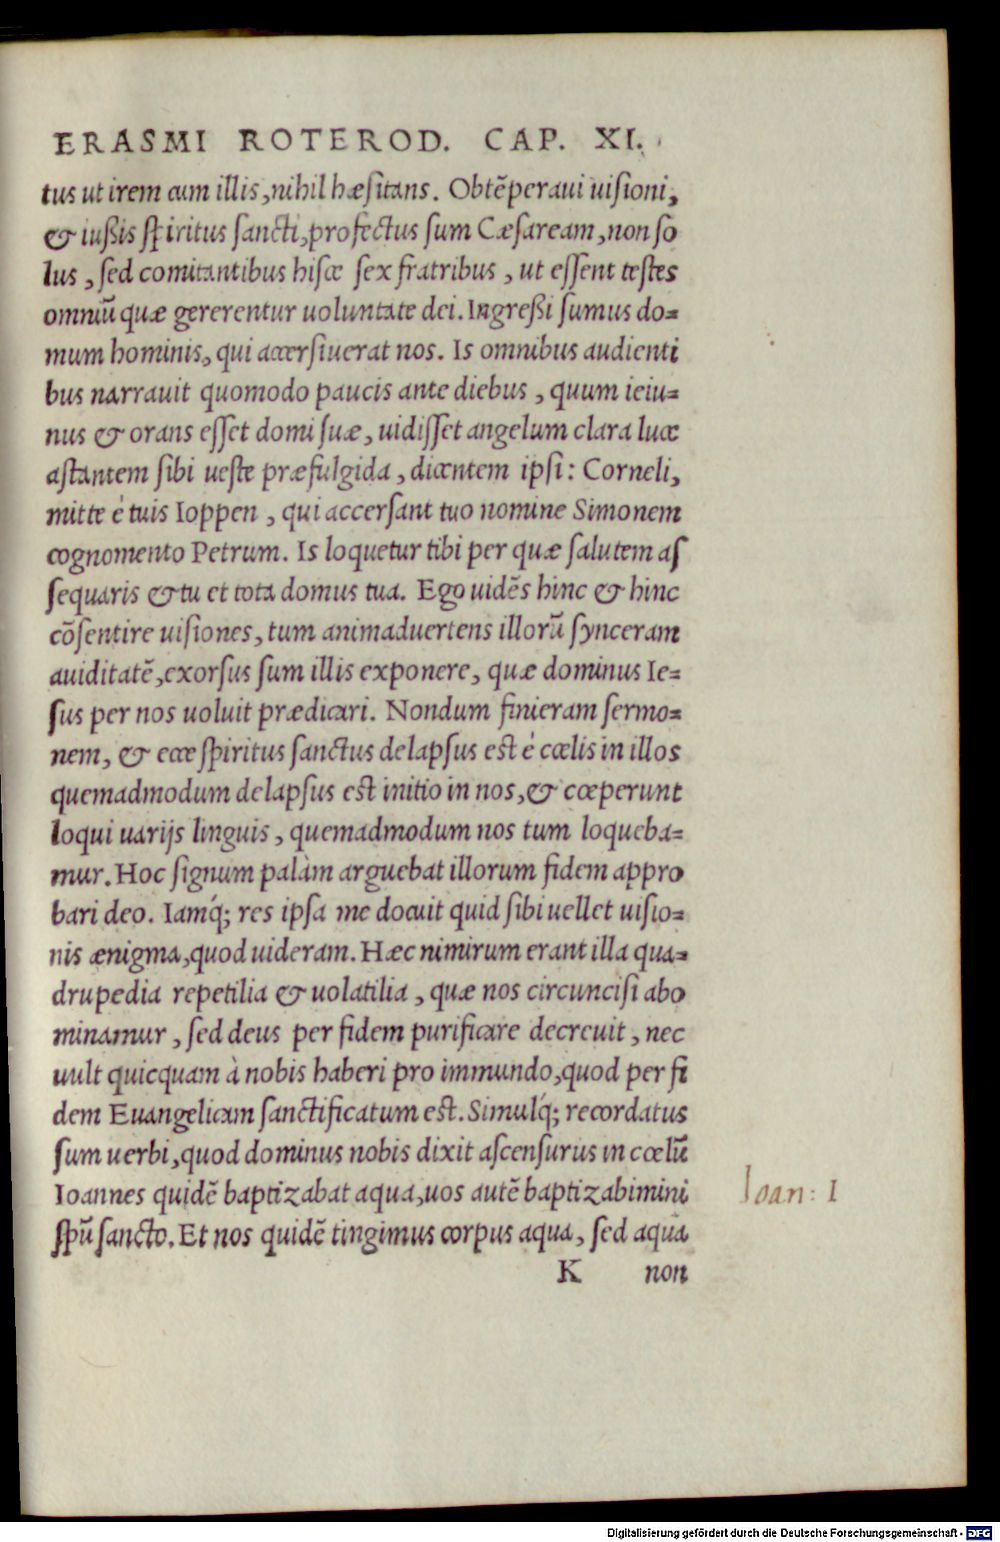 ERASMI ROTEROD. CAP. XI.
tus ut irem cum illis, nihil hæsitans. Obtẽperaui uisioni,
& iußis spiritus sancti, profectus sum Cæsaream, non so
lus, sed comitantibus hisce sex fratribus, ut essent testes
omniũ quæ gererentur uoluntate dei. Ingreßi sumus do=
mum hominis, qui accersiuerat nos. Is omnibus audienti
bus narrauit quomodo paucis ante diebus, quum ieiu=
nus & orans esset domi suæ, uidisset angelum clara luce
astantem sibi ueste præfulgida, dicentem ipsi: Corneli,
mitte è tuis Ioppen, qui accersant tuo nomine Simonem
cognomento Petrum. Is loquetur tibi per quæ salutem as
sequaris & tu et tota domus tua. Ego uidẽs hinc & hinc
cõsentire uisiones, tum animaduertens illorũ synceram
auiditatẽ, exorsus sum illis exponere, quæ dominus Ie=
sus per nos uoluit prædicari. Nondum finieram sermo=
nem, & ecce spiritus sanctus delapsus est è cœlis in illos
quemadmodum delapsus est initio in nos, & cœperunt
loqui uarijs linguis, quemadmodum nos tum loqueba=
mur. Hoc signum palàm arguebat illorum fidem appro
bari deo. Iamq́; res ipsa me docuit quid sibi uellet uisio=
nis ænigma, quod uideram. Hæc nimirum erant illa qua=
drupedia repetilia & uolatilia, quæ nos circuncisi abo
minamur, sed deus per fidem purificare decreuit, nec
uult quicquam à nobis haberi pro immundo, quod per fi
dem Euangelicam sanctificatum est. Simulq́; recordatus
sum uerbi, quod dominus nobis dixit ascensurus in cœlũ
Ioannes quidẽ baptizabat aqua, uos autẽ baptizabimini
spũ sancto. Et nos quidẽ tingimus corpus aqua, sed aqua
Ioan: 1
K non
Digitalisierung gefördert durch die Deutsche Forschungsgemeinschaft - DFG